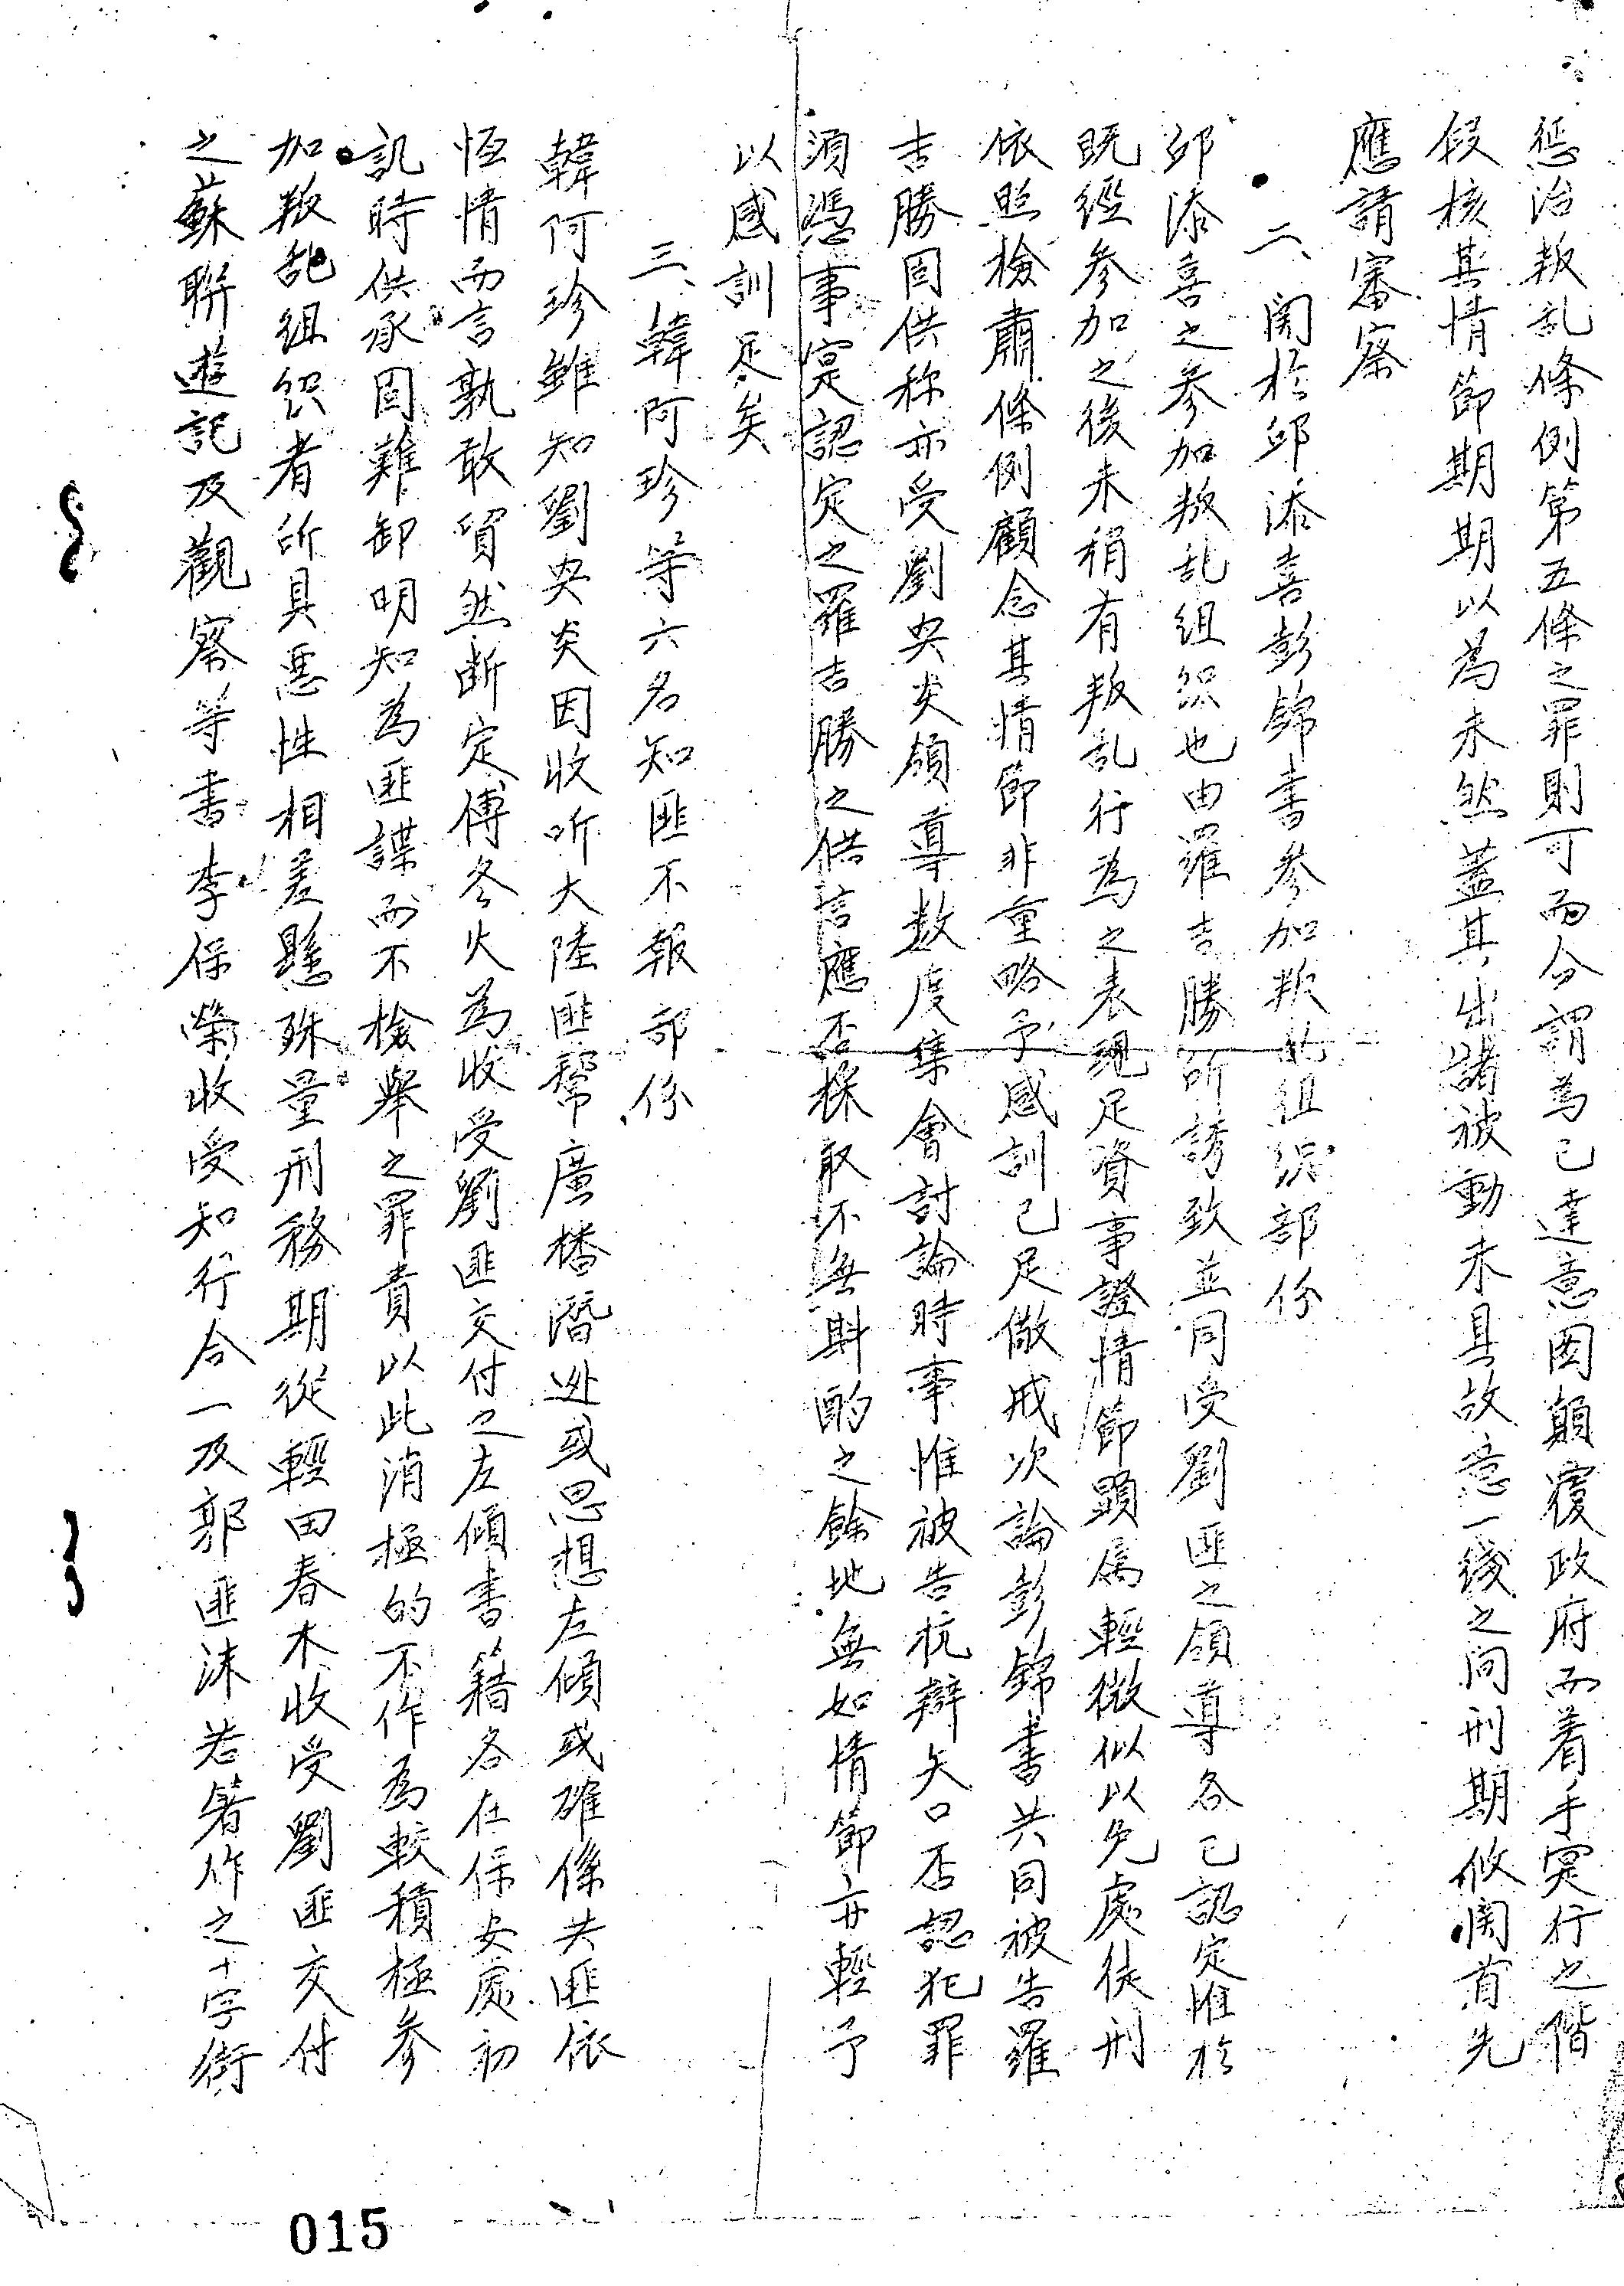 惩治叛乱條例第五條之罪則可而今謂為已達意図顛覆政府而着手实行之階
段核其情節期期以為未然蓋其出諸被動未具故意一綫之间刑期攸関首先
應請審察
二、関於邱添喜彭錦書参加叛乱组织部份
邱添喜之参加叛乱组织也由羅吉勝所誘致並同受劉匪之領導各已認定惟於
既經参加之後未稍有叛乱行為之表現足資事證情節顕属輕微似以免處徒刑
依照檢肅條例顧念其情節非重略予感訓已足儆戒次論彭錦書共同被告羅
吉勝固供称亦受劉央炎領導数度集會討論時事惟被告抗辯矢口否認犯罪
須憑事寔認定之羅吉勝之供言應否採取不無斟酌之餘地無如情節亦輕予
以感訓足矣
三、韓阿珍等六名知匪不報部份
韓阿珍雖知劉央炎因收听大陸匪幫廣播潛逃或思想左傾或確係共匪依
恒情而言孰敢貿然断定傅冬火為收受劉匪交付之左傾書籍各在保安處初
訊時供承固難卸明知為匪諜而不檢舉之罪責以此消極的不作為較積極参
加叛乱组织者所具惡性相差懸殊量刑務期從輕田春木收受劉匪交付
之蘇聯遊記及觀察等書李保榮收受知行合一及郭匪沫若箸作之十字街
015